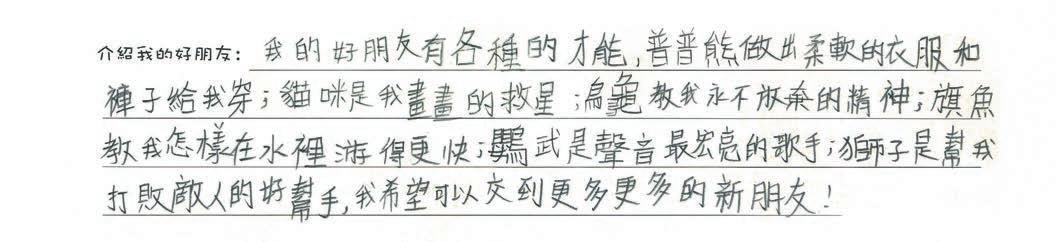 介紹我的好朋友：我的好朋友有各種的才能，普普熊做出柔軟的衣服和
褲子給我穿；貓咪是我畫畫的救星；烏龜教我永不放棄的精神；旗魚
教我怎樣在水裡游得更快；鸚武是聲音最宏亮的歌手；獅子是幫我
打敗敵人的好幫手，我希望可以交到更多更多的新朋友！